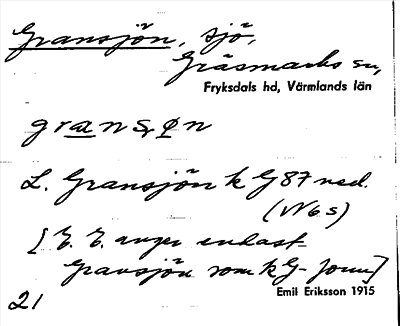 Gransjön, sjö,
Gräsmarks sn,
Fryksdals hd, Värmlands län
gransøn
L. Gransjön k G 87 ned.
(N 6 s)
[E. E. anger endast
Gransjön som k G- form]
Emil Eriksson 1915
21